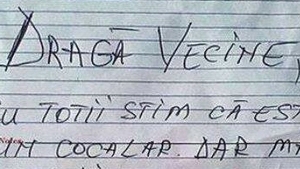 DRAGĂ VECINE,
TOTII STIM CĂ EST
UN COCALAR. DAR